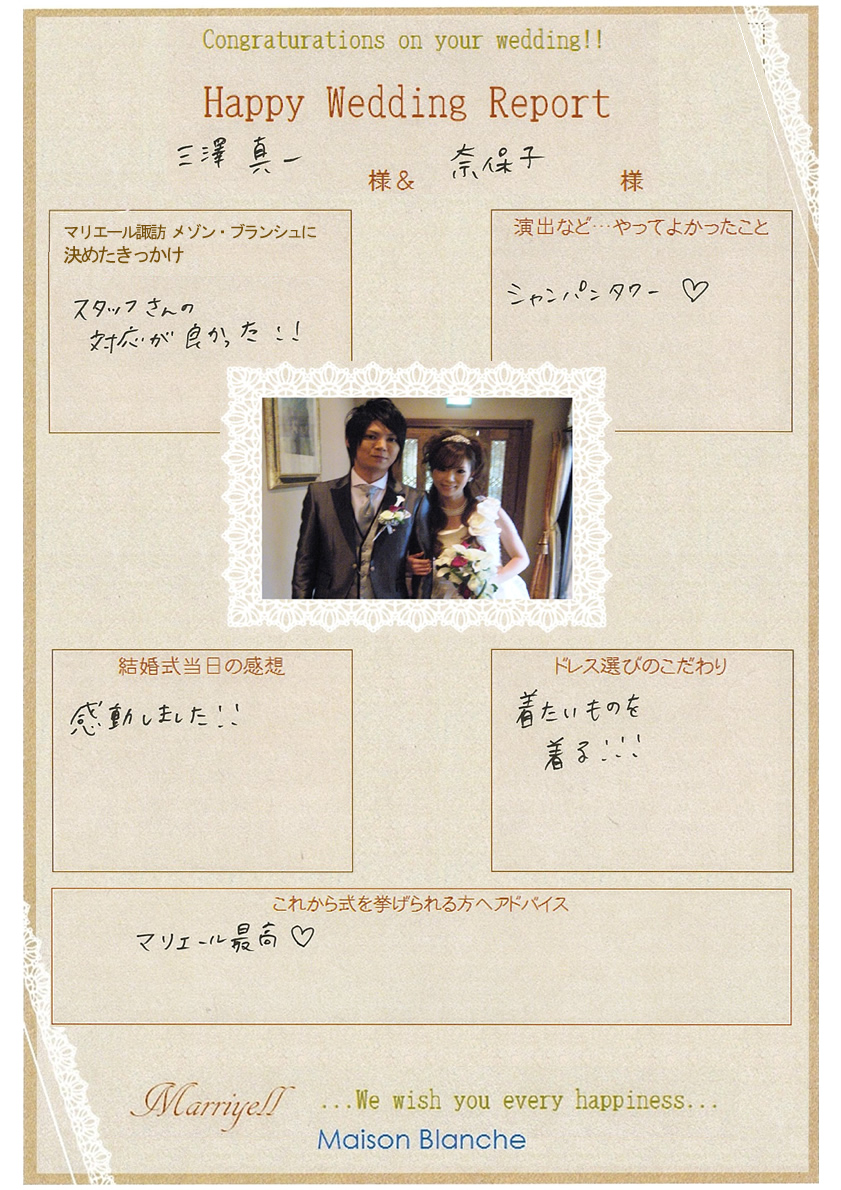 Congraturations on your wedding!!
Happy Wedding Report
三澤 真一 様& 奈保子 様
マリエール諏訪 メゾン・ブランシュに
決めたきっかけ
スタッフさんの
対応が良かった!!
演出など…やってよかったこと
シャンパンタワー ♡
結婚式当日の感想
感動しました!!
ドレス選びのこだわり
着たいものを
着る!!!
これから式を挙げられる方へアドバイス
マリエール最高 ♡
Marriyell ...We wish you every happiness...
Maison Blanche